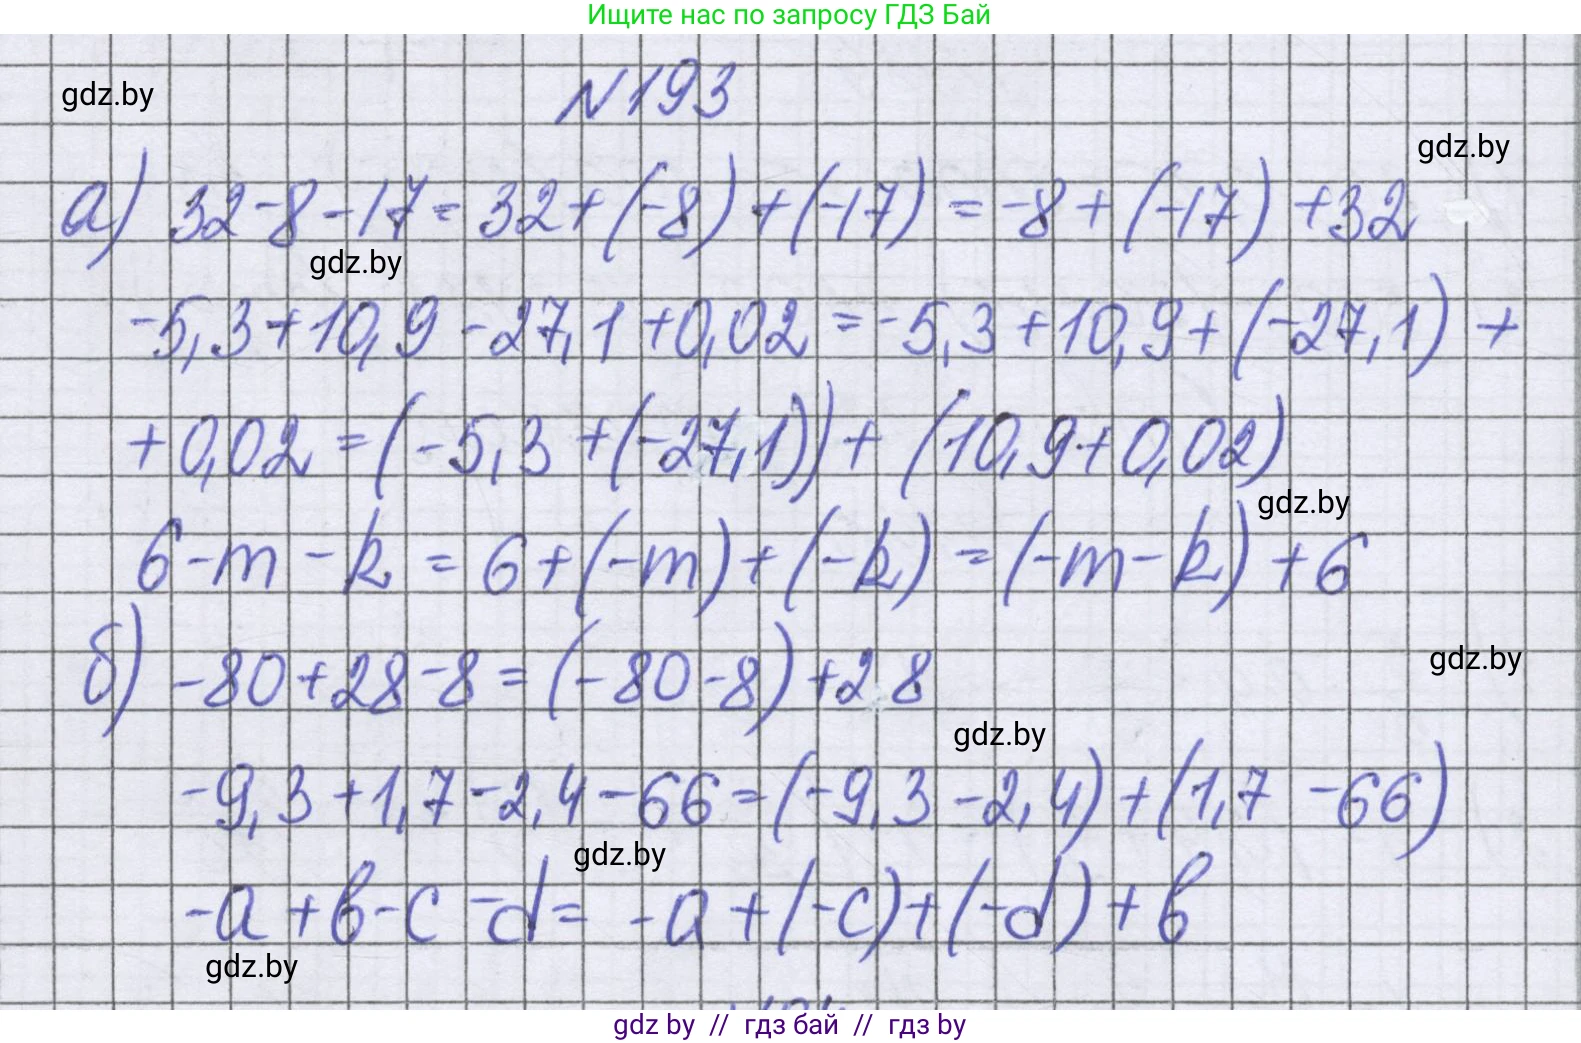 Ищите нас по запросу ГДЗ Бай
N193
gdz.by
gdz.by
а) 32-8-17=32+(-8)+(-17)=-8+(-17)+32
gdz.by
-5,3+10,9-27,1+0,02=-5,3+10,9+(-27,1)+
+0,02=(-5,3+(-27,1))+(10,9+0,02)
gdz.by
6-m-k=6+(-m)+(-k)=(-m-k)+6
б) -80+28-8=(-80-8)+28
gdz.by
gdz.by
-9,3+1,7-2,4-66=(-9,3-2,4)+(1,7-66)
gdz.by
-a+b-c-d=-a+(-c)+(-d)+b
gdz.by
gdz by // гдз бай // гдз by